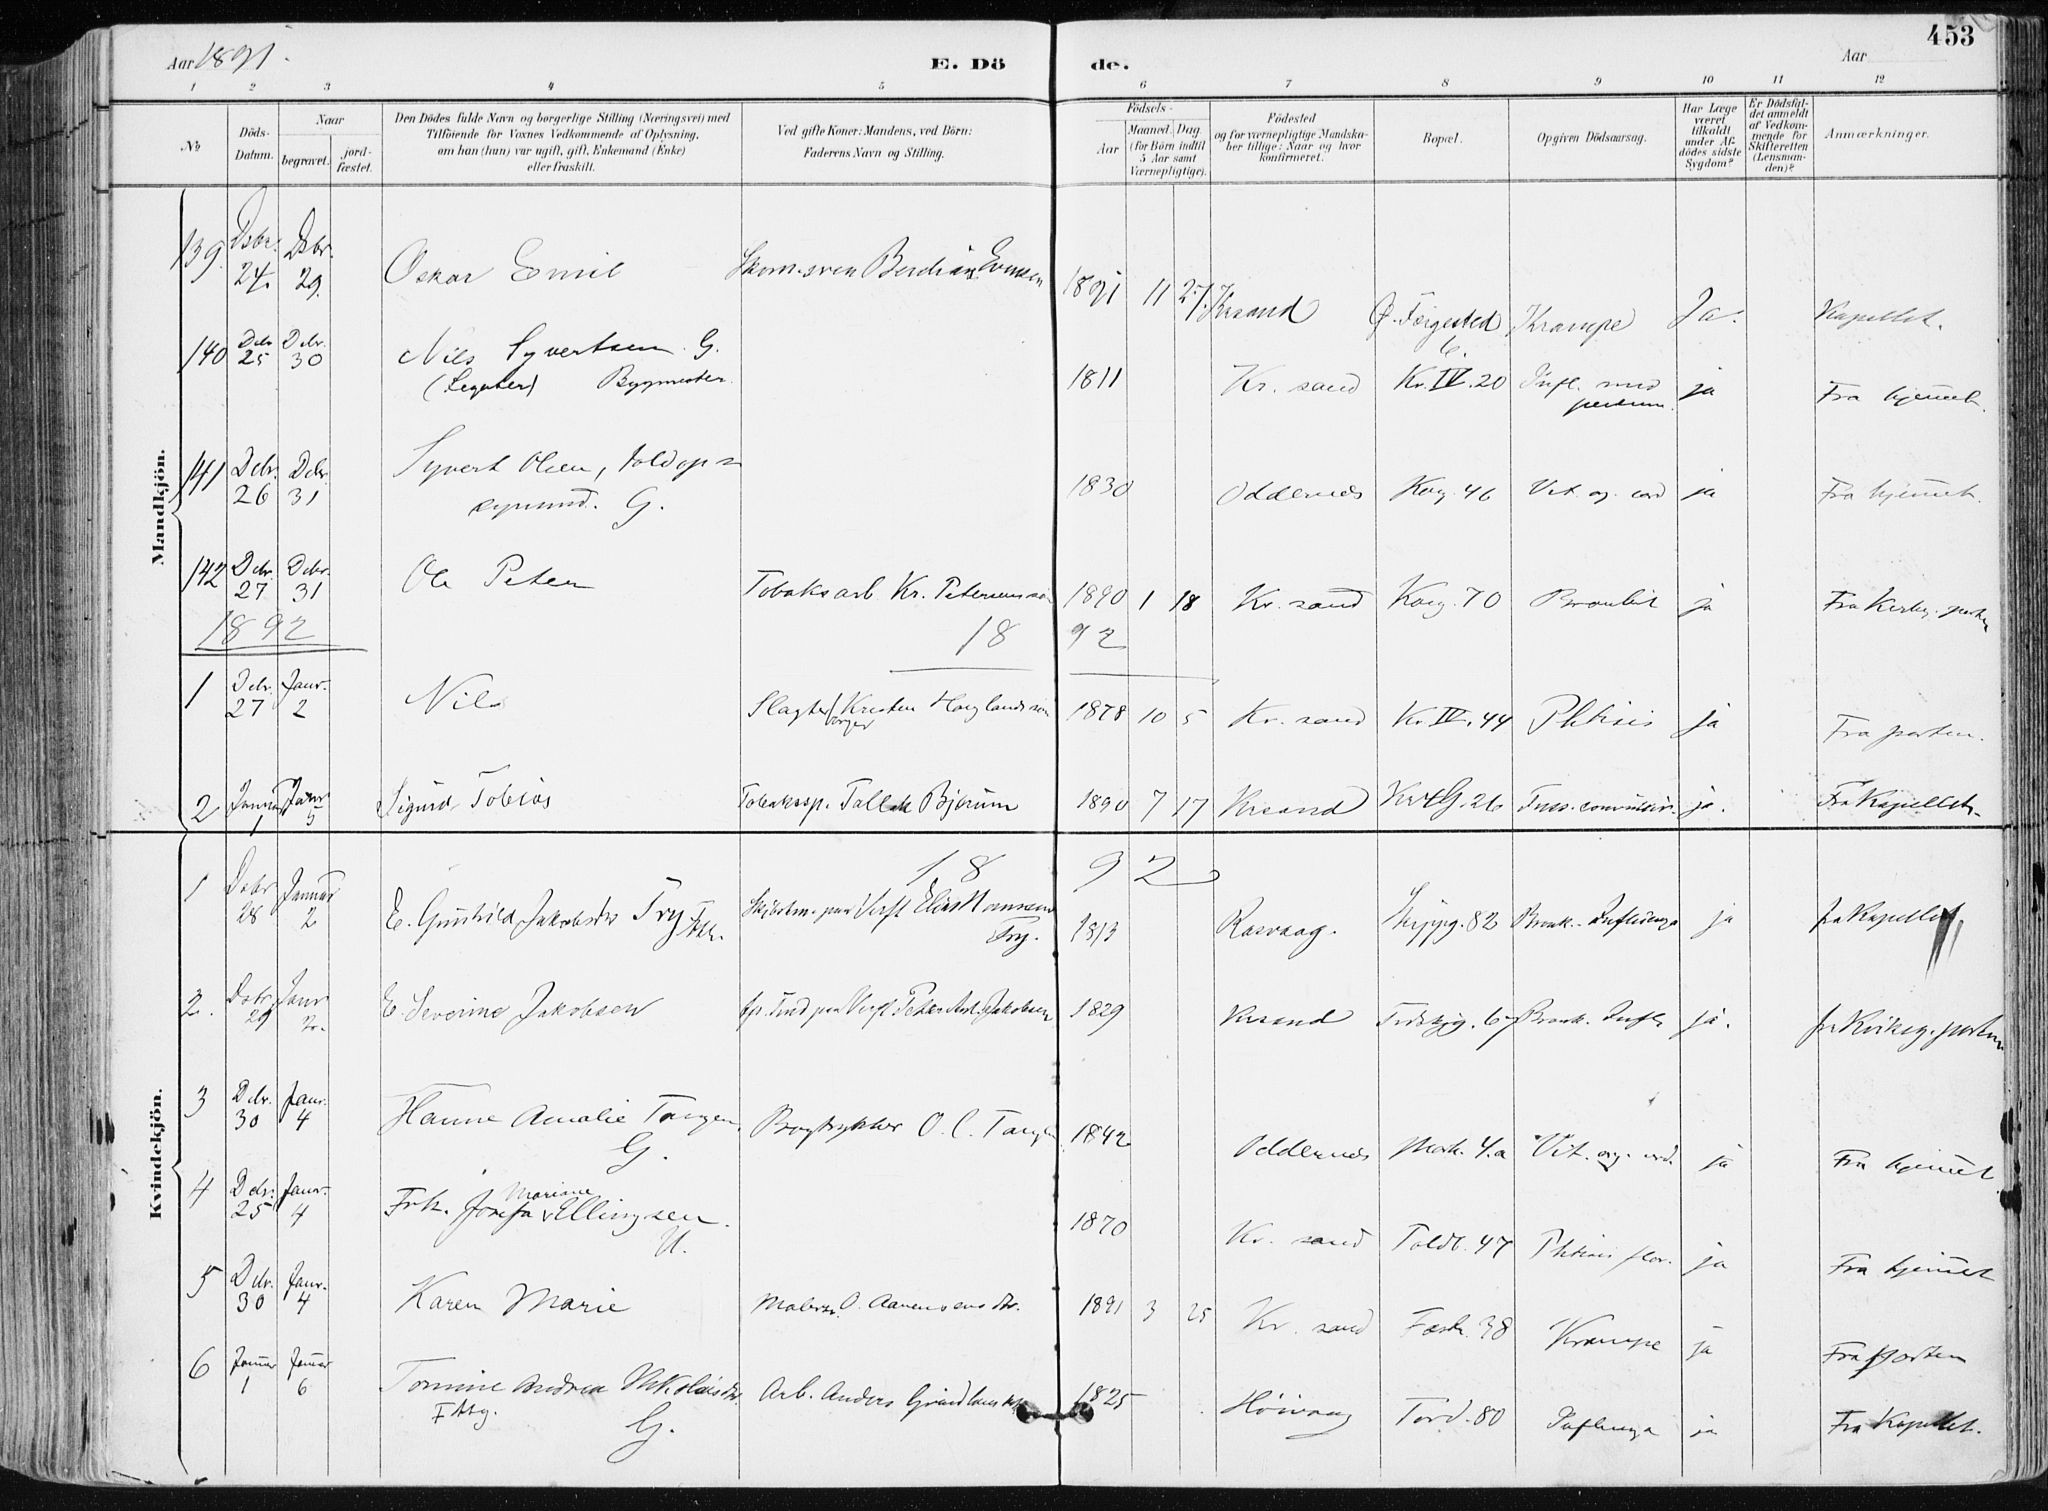 453
Aar 1891.
E. Dö de.
Aar
1 2 3 4 5 6 7 8 9 10 11 12
No
Döds-Datum.
Naar
begravet.
jord-fæstet.
Den Dödes fulde Navn og borgerlige Stilling (Næringsvei) med
Tilföiende for Voxnes Vedkommende af Oplysning,
om han (hun) var ugift, gift, Enkemand (Enke)
eller fraskilt.
Ved gifte Koner: Mandens, ved Börn:
Faderens Navn og Stilling.
Födsels-
Aar
Maaned. Dag.
(for Börn indtil
5 Aar samt
Værnepligtige).
Födested
og for værnepligtige Mandska-
ber tillige: Naar og hvor
konfirmeret.
Bopæl.
Opgiven Dödsaarsag.
Har Læge
været
tilkaldt
under Af-
dödes sidste
Sygdom?
Er Dödsfal-
det anmeldt
af Vedkom-
mende for
Skifteretten
(Lensman-
den)?
Anmærkninger.
Mandkjön.
139. Dsbr. 24. Dsbr. 29. Oskar Emil 1891 11 27. Krsand Krampe Ja. Kapellet.
140 Dcbr 25 Dcbr. 30 Nils Syvertsen. G. Bygmester. 1811 Kr. sand Kr. IV. 20 Infl. ja Fra hjemmet.
141 Dcbr. 26 Dcbr. 31 Syvert Olsen, G. 1830 Oddernes Kong. 46 Vit. org. cord ja Fra hjemmet.
142 Dcbr. 27 Dcbr. 31 Ole Peter Tobaksarb Kr. Petersens sön 1890 1 18 Kr. sand Kong. 70 Bronkit ja Fra
1892 18 92
1 Dcbr. 27 Janr. 2 Nils Slagter Kristen Hauglands sön 1878 10 5 Kr. sand Kr IV. 44 Phtisis ja Fra porten.
2 Januar 1 Janr 5 Sigurd Tobias Tobakssp. Tallak Bjorum 1890 7 17 Krsand ja. Fra Kapellet.
Kvindekjön.
18 92
1 Dcbr 28 Januar 2 E. Gunhild Jakobsdr Try Elias Hansens Try. 1813 Rosvaag. Skippg. 82 Bronk. Influenza ja fra Kapellet
2. Dcbr 29 Janr E. Severine Jakobsen Jakobsen 1829 Krsand Bronk. Infl. ja.
3 Dcbr. 30 Janr. 4 Hanne Amalie Tangen G. Bogtrykker O. C. Tangen 1842 Oddernes Mark. 4.a Vit. org. cord. ja Fra hjemmet
4 Dcbr. 25 Janr. 4 Frk. Josefa Mariane Ellingsen. U. 1870 Kr. sand Toldb. 47 Phtisis flor. ja Fra hjemmet
5 Dcbr. 30 Janr. 4 Karen Marie Malersv. O. Aanensens dtr. 1891 3 25 Kr. sand Fæstn. 38 Krampe ja Fra porten
6 Januar 1 Januar 6 Tomine Andrea Nikolaisdtr. G. Arb. Anders 1825 Höivaag Tord. 80 Influenza ja Fra Kapellet.